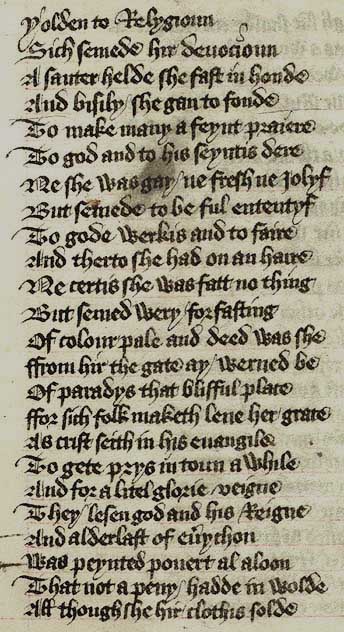 Yolden to Relygioun
Sich semede hir deuocioun
A sauter helde she fast in honde
And bisily / she gan to fonde
To make many a feynt praiere
To god and to his seyntis dere
Ne she was gay / ne fresh ne Jolyf
But semede to be ful ententyf
To gode werkis and to faire
And therto she had on an haire
Ne certis she was fatt no thing
But semed wery / for fasting
Of colour pale and deed was she
ffrom hir the gate ay / werned be
Of paradys that blisful place
ffor sich folk maketh lene her / grace
As crist seith in his euangile
To gete prys in toun a while
And for a litel glorie / veigne
They / lesen god and his / Reigne
And alderlast of euychon
Was peynted pouert al aloon
That not a peny / hadde in wolde
All though she hir / clothis solde